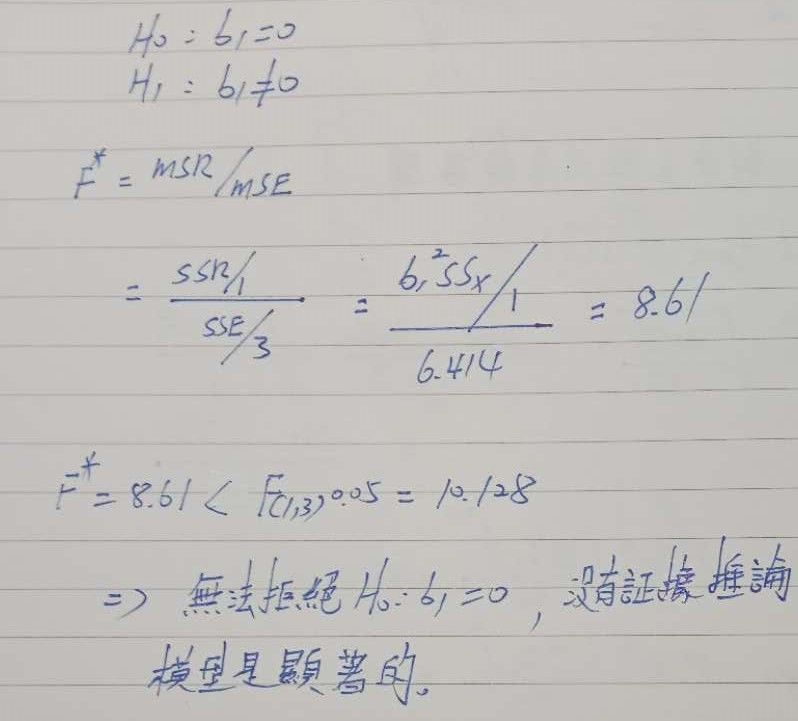 H₀ : b₁ = 0
H₁ : b₁ ≠ 0
F* = MSR/MSE
= (SSR/1)/(SSE/3) = (b₁²SSx/1)/6.414 = 8.61
F* = 8.61 < F(1,3)0.05 = 10.128
=> 無法拒絕 H₀ : b₁ = 0 , 沒有証據推論
模型是顯著的。